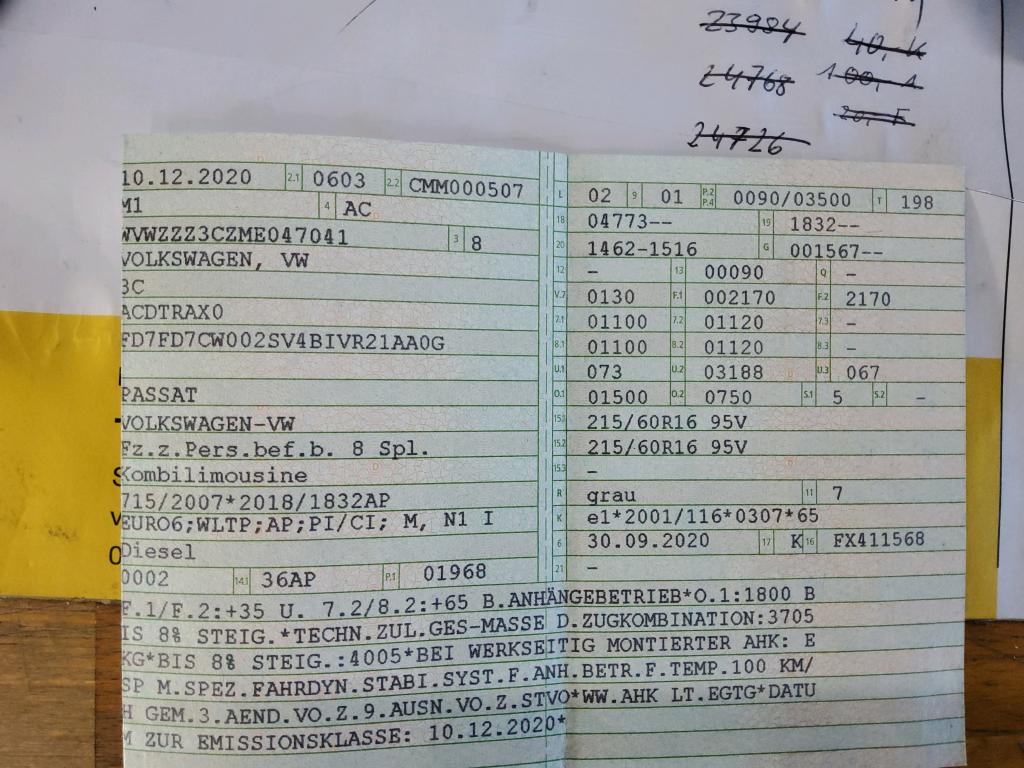 23984 40, K
24768 100, 1
20, F
24726
10.12.2020 2.1 0603 2.2 CMM000507
M1 4 AC
WVWZZZ3CZME047041 3 8
VOLKSWAGEN, VW
3C
ACDTRAX0
FD7FD7CW002SV4BIVR21AA0G
PASSAT
VOLKSWAGEN-VW
Fz.z.Pers.bef.b. 8 Spl.
Kombilimousine
715/2007*2018/1832AP
EURO6;WLTP;AP;PI/CI; M, N1 I
Diesel
0002 14.1 36AP P.1 01968
L 02 9 01 P.2 P.4 0090/03500 T 198
18 04773-- 19 1832--
20 1462-1516 G 001567--
12 - 13 00090 Q -
V.7 0130 F.1 002170 F.2 2170
7.1 01100 7.2 01120 7.3 -
8.1 01100 8.2 01120 8.3 -
U.1 073 U.2 03188 U.3 067
O.1 01500 O.2 0750 S.1 5 S.2 -
15.1 215/60R16 95V
15.2 215/60R16 95V
15.3 -
R grau 11 7
K e1*2001/116*0307*65
6 30.09.2020 17 K 16 FX411568
21 -
F.1/F.2:+35 U. 7.2/8.2:+65 B.ANHÄNGEBETRIEB*O.1:1800 B
IS 8% STEIG.*TECHN.ZUL.GES-MASSE D.ZUGKOMBINATION:3705
KG*BIS 8% STEIG.:4005*BEI WERKSEITIG MONTIERTER AHK: E
SP M.SPEZ.FAHRDYN.STABI.SYST.F.ANH.BETR.F.TEMP.100 KM/
H GEM.3.AEND.VO.Z.9.AUSN.VO.Z.STVO*WW.AHK LT.EGTG*DATU
M ZUR EMISSIONSKLASSE: 10.12.2020*